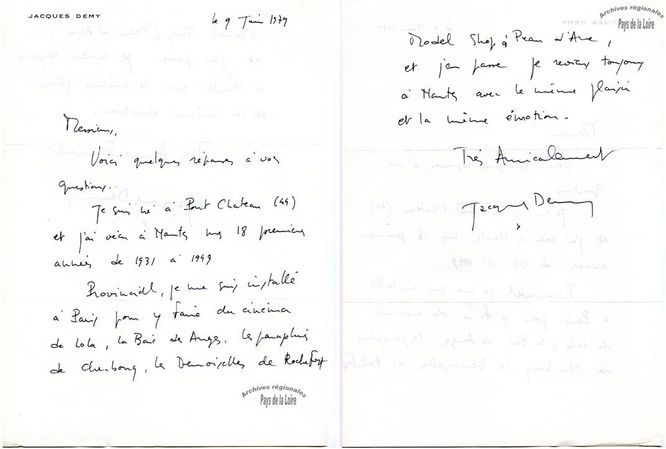 JACQUES DEMY
le 9 Juin 1979
Messieurs,
Voici quelques réponses à vos
questions.
Je suis né à Pont Chateau (44)
et j'ai vécu à Nantes mes 18 premières
années de 1931 à 1949
Provincial, je me suis installé
à Paris pour y faire du cinéma
de Lola, la Baie des Anges, les parapluies
de Cherbourg, les Demoiselles de Rochefort
Archives régionales
Pays de la Loire
Archives régionales
Pays de la Loire
Model Shop à Peau d'Ane,
et j'en passe je reviens toujours
à Nantes avec le même plaisir
et la même émotion.
Très Amicalement
Jacques Demy